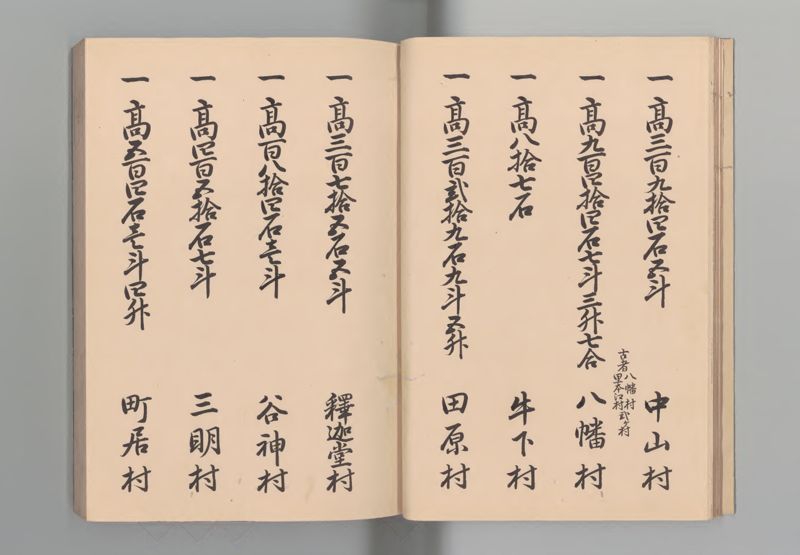 一 高三百九拾四石五斗 中山村
一 高九百四拾四石七斗三升七合 八幡村
古者八幡村
里本江村弐ヶ村
一 高八拾七石 牛下村
一 高三百弐拾九石九斗五升 田原村
一 高三百七拾五石五斗 釋迦堂村
一 高百八拾四石壱斗 谷神村
一 高四百五拾石七斗 三明村
一 高五百四石壱斗四升 町居村